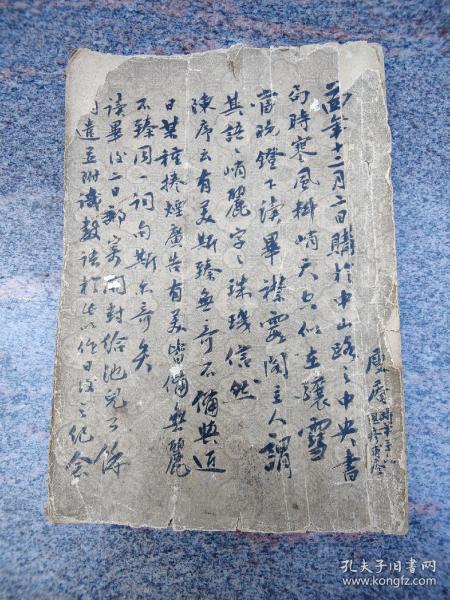 年十二月二日購於中山路之中央書
局時寒風料峭天公似在釀雪
當晚鐙下讀畢襟霞閣主人謂
其語峭麗字々珠璣信然
陳序云有美斯臻無奇不備與近
日某種捲煙廣告有美皆備無麗
不臻同一詞句斯亦奇矣
讀畢後二日郵寄開封給池兒
遣並附識數語於此以作日後之紀念
孔夫子旧书网
www.kongfz.com